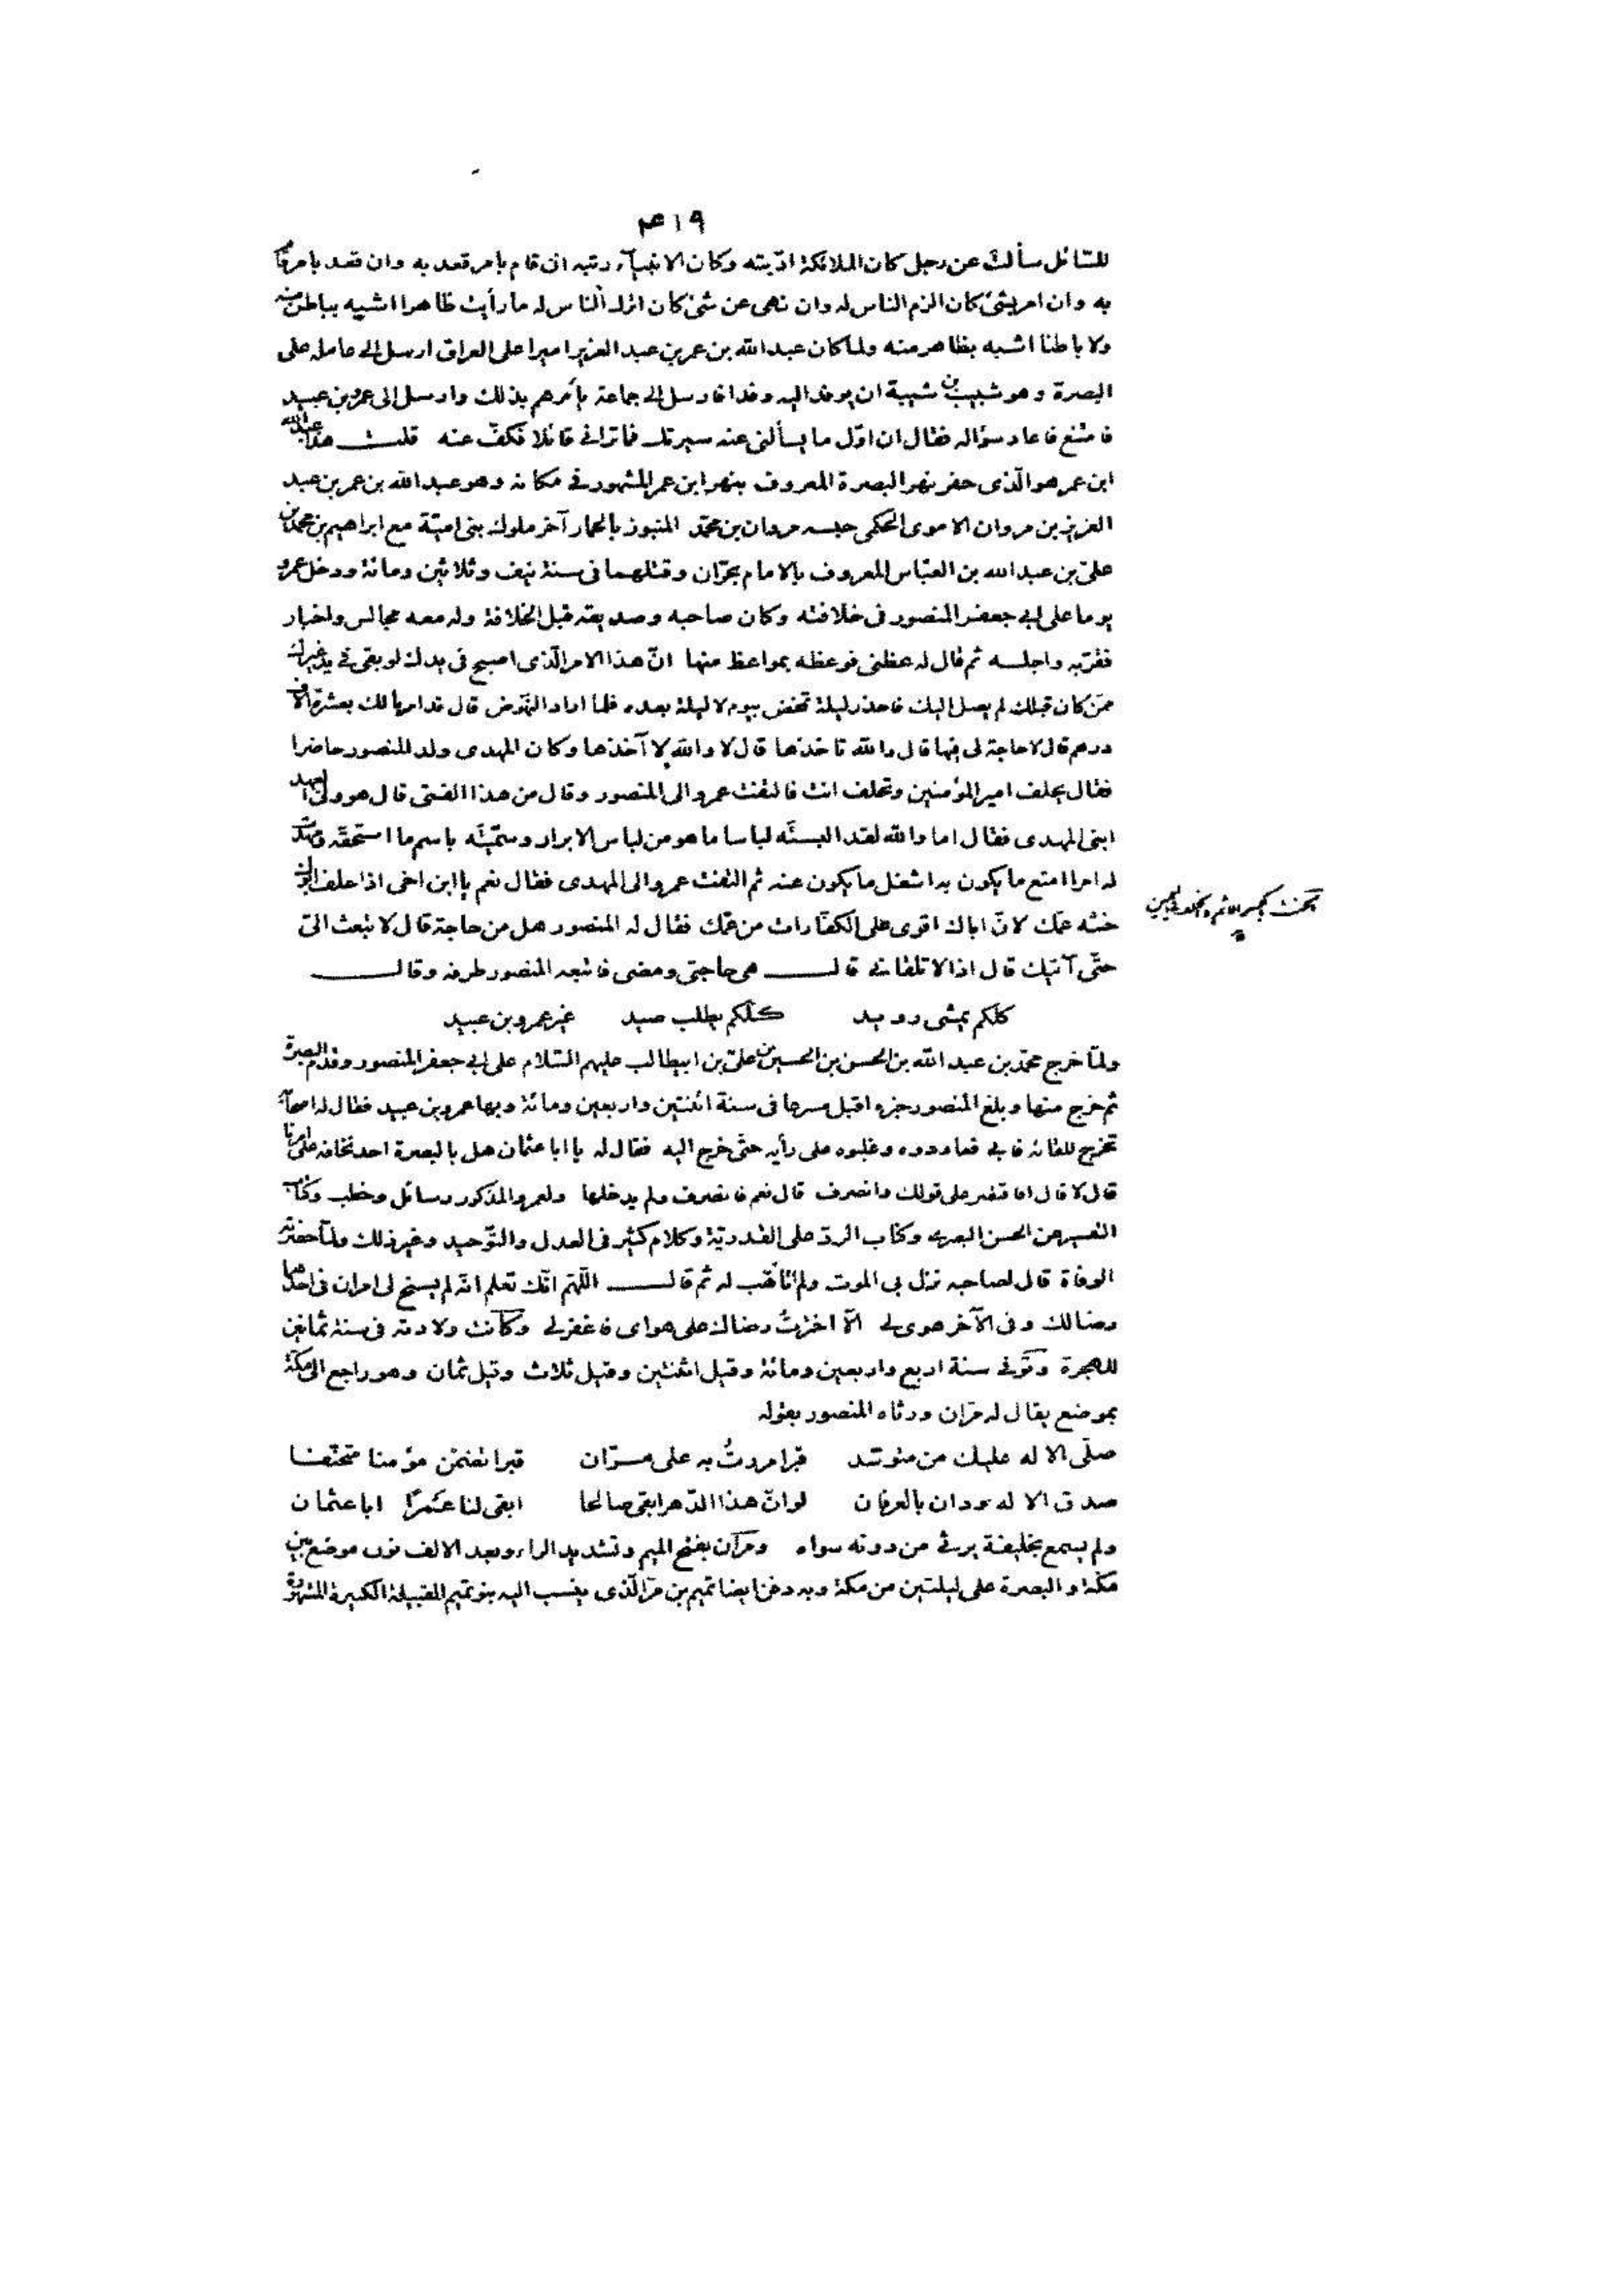 ٤١٩
للسّائل سألت عن رجل كان الملائكة ادّبته وكان الانبيآء ربّته ان قام بامر قعد به وان قعد بامر قام
به وان امر بشئ كان الزم الناس له وان نهى عن شئ كان اترك الناس له ما رأيت ظاهرا اشبه بباطن منه
ولا باطنا اشبه بظاهر منه ولما كان عبد الله بن عمر بن عبد العزيز اميرا على العراق ارسل الى عامله على
البصرة وهو شبيب بن شيبة ان يوفد اليه وفدا فارسل الى جماعة يأمرهم بذلك وارسل الى عمرو بن عبيد
فامتنع فاعاد سؤاله فقال ان اوّل ما يسألنى عنه سيرتك فما ترانى قائلا فكفّ عنه قلت هذا عبد الله
ابن عمر هو الّذى حفر نهر البصرة المعروف بنهر ابن عمر المشهور فى مكانه وهو عبد الله بن عمر بن عبد
العزيز بن مروان الاموى الحكمى حبسه مروان بن محمّد المنبوز بالحمار آخر ملوك بنى اميّة مع ابراهيم بن محمد بن
علىّ بن عبد الله بن العبّاس المعروف بالامام بحرّان وقتلهما فى سنة نيف وثلاثين ومائة ودخل عمرو
يوما على ابى جعفر المنصور فى خلافته وكان صاحبه وصديقه قبل الخلافة وله معه مجالس واخبار
فقرّبه واجلسه ثم قال له عظنى فوعظه بمواعظ منها انّ هذا الامر الّذى اصبح فى يدك لو بقى فى يد غيرك
ممّن كان قبلك لم يصل اليك فاحذر ليلة تمخض بيوم لا ليلة بعده فلما اراد النّهوض قال قد امرنا لك بعشرة آلاف
درهم قال لا حاجة لى فيها قال والله تاخذها قال لا والله لا آخذها وكان المهدى ولد المنصور حاضرا
فقال يحلف امير المؤمنين وتحلف انت فالتفت عمرو الى المنصور وقال من هذا الفتى قال هو ولىّ العهد
ابنى المهدى فقال اما والله لقد البستَه لباسا ما هو من لباس الابرار وسمّيتَه باسم ما استحقّه ومهّدت
له امرا امتع ما يكون به اشغل ما يكون عنه ثم التفت عمرو الى المهدى فقال نعم يا ابن اخى اذا حلف ابوك
حنثه عمّك لانّ اباك اقوى على الكفّارات من عمّك فقال له المنصور هل من حاجة قال لا تبعث الىّ
حتّى آتيك قال اذا لا تلقانى قال هى حاجتى ومضى فاتبعه المنصور طرفه وقال
كلّكم يمشى رويد كلّكم يطلب صيد غير عمرو بن عبيد
ولمّا خرج محمّد بن عبد الله بن الحسن بن الحسين بن علىّ بن ابيطالب عليهم السّلام على ابى جعفر المنصور وقدم البصرة
ثم خرج منها وبلغ المنصور خبره اقبل مسرعا فى سنة اثنتين واربعين ومائة وبها عمرو بن عبيد فقال له اصحابه
تخرج للقائه فابى فعاودوه وغلبوه على رأيه حتّى خرج اليه فقال له يا ابا عثمان هل بالبصرة احد نخافه على امرنا
قال لا قال افاقتصر على قولك وانصرف قال نعم فانصرف ولم يدخلها ولعمرو المذكور رسائل وخطب وكتاب
التفسير عن الحسن البصرى وكتاب الردّ على القدريّة وكلام كثير فى العدل والتّوحيد وغير ذلك ولمّا حضرته
الوفاة قال لصاحبه نزل بى الموت ولم اتأهّب له ثم قال اللّهمّ انّك تعلم انّه لم يسنح لى امران فى احدهما
رضا لك وفى الآخر هوى لى الّا اخترتُ رضاك على هواى فاغفر لى وكانت ولادته فى سنة ثمانين
للهجرة وتوفّى سنة اربع واربعين ومائة وقيل اثنتين وقيل ثلاث وقيل ثمان وهو راجع الى مكّة
بموضع يقال له مرّان ورثاه المنصور بقوله
صلّى الاله عليك من متوسّد قبرا مررتُ به على مرّان قبرا تضمّن مؤمنا متحنّفا
صدق الاله ودان بالعرفان لو انّ هذا الدّهر ابقى صالحا ابقى لنا عَمرًا ابا عثمان
ولم يسمع بخليفة يرثى من دونه سواه ومرّان بفتح الميم وتشديد الراء وبعد الالف نون موضع بين
مكّة والبصرة على ليلتين من مكّة وبه دفن ايضا تميم بن مرّ الّذى ينسب اليه بنو تميم القبيلة الكبيرة المشهورة